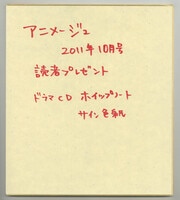 アニメージュ
2011年10月号
読者プレゼント
ドラマCD ホイップノート
サイン色紙